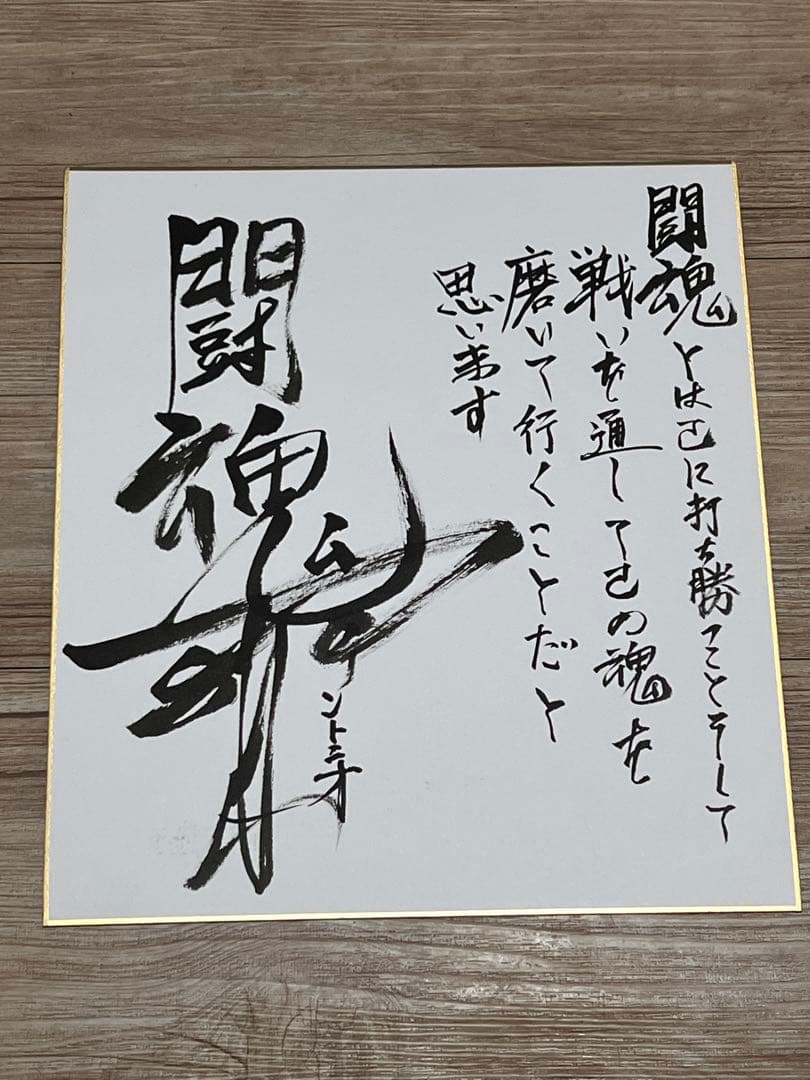 闘魂とは己に打ち勝つことそして
戦いを通して己の魂を
磨いて行くことだと
思います
闘魂
アントニオ